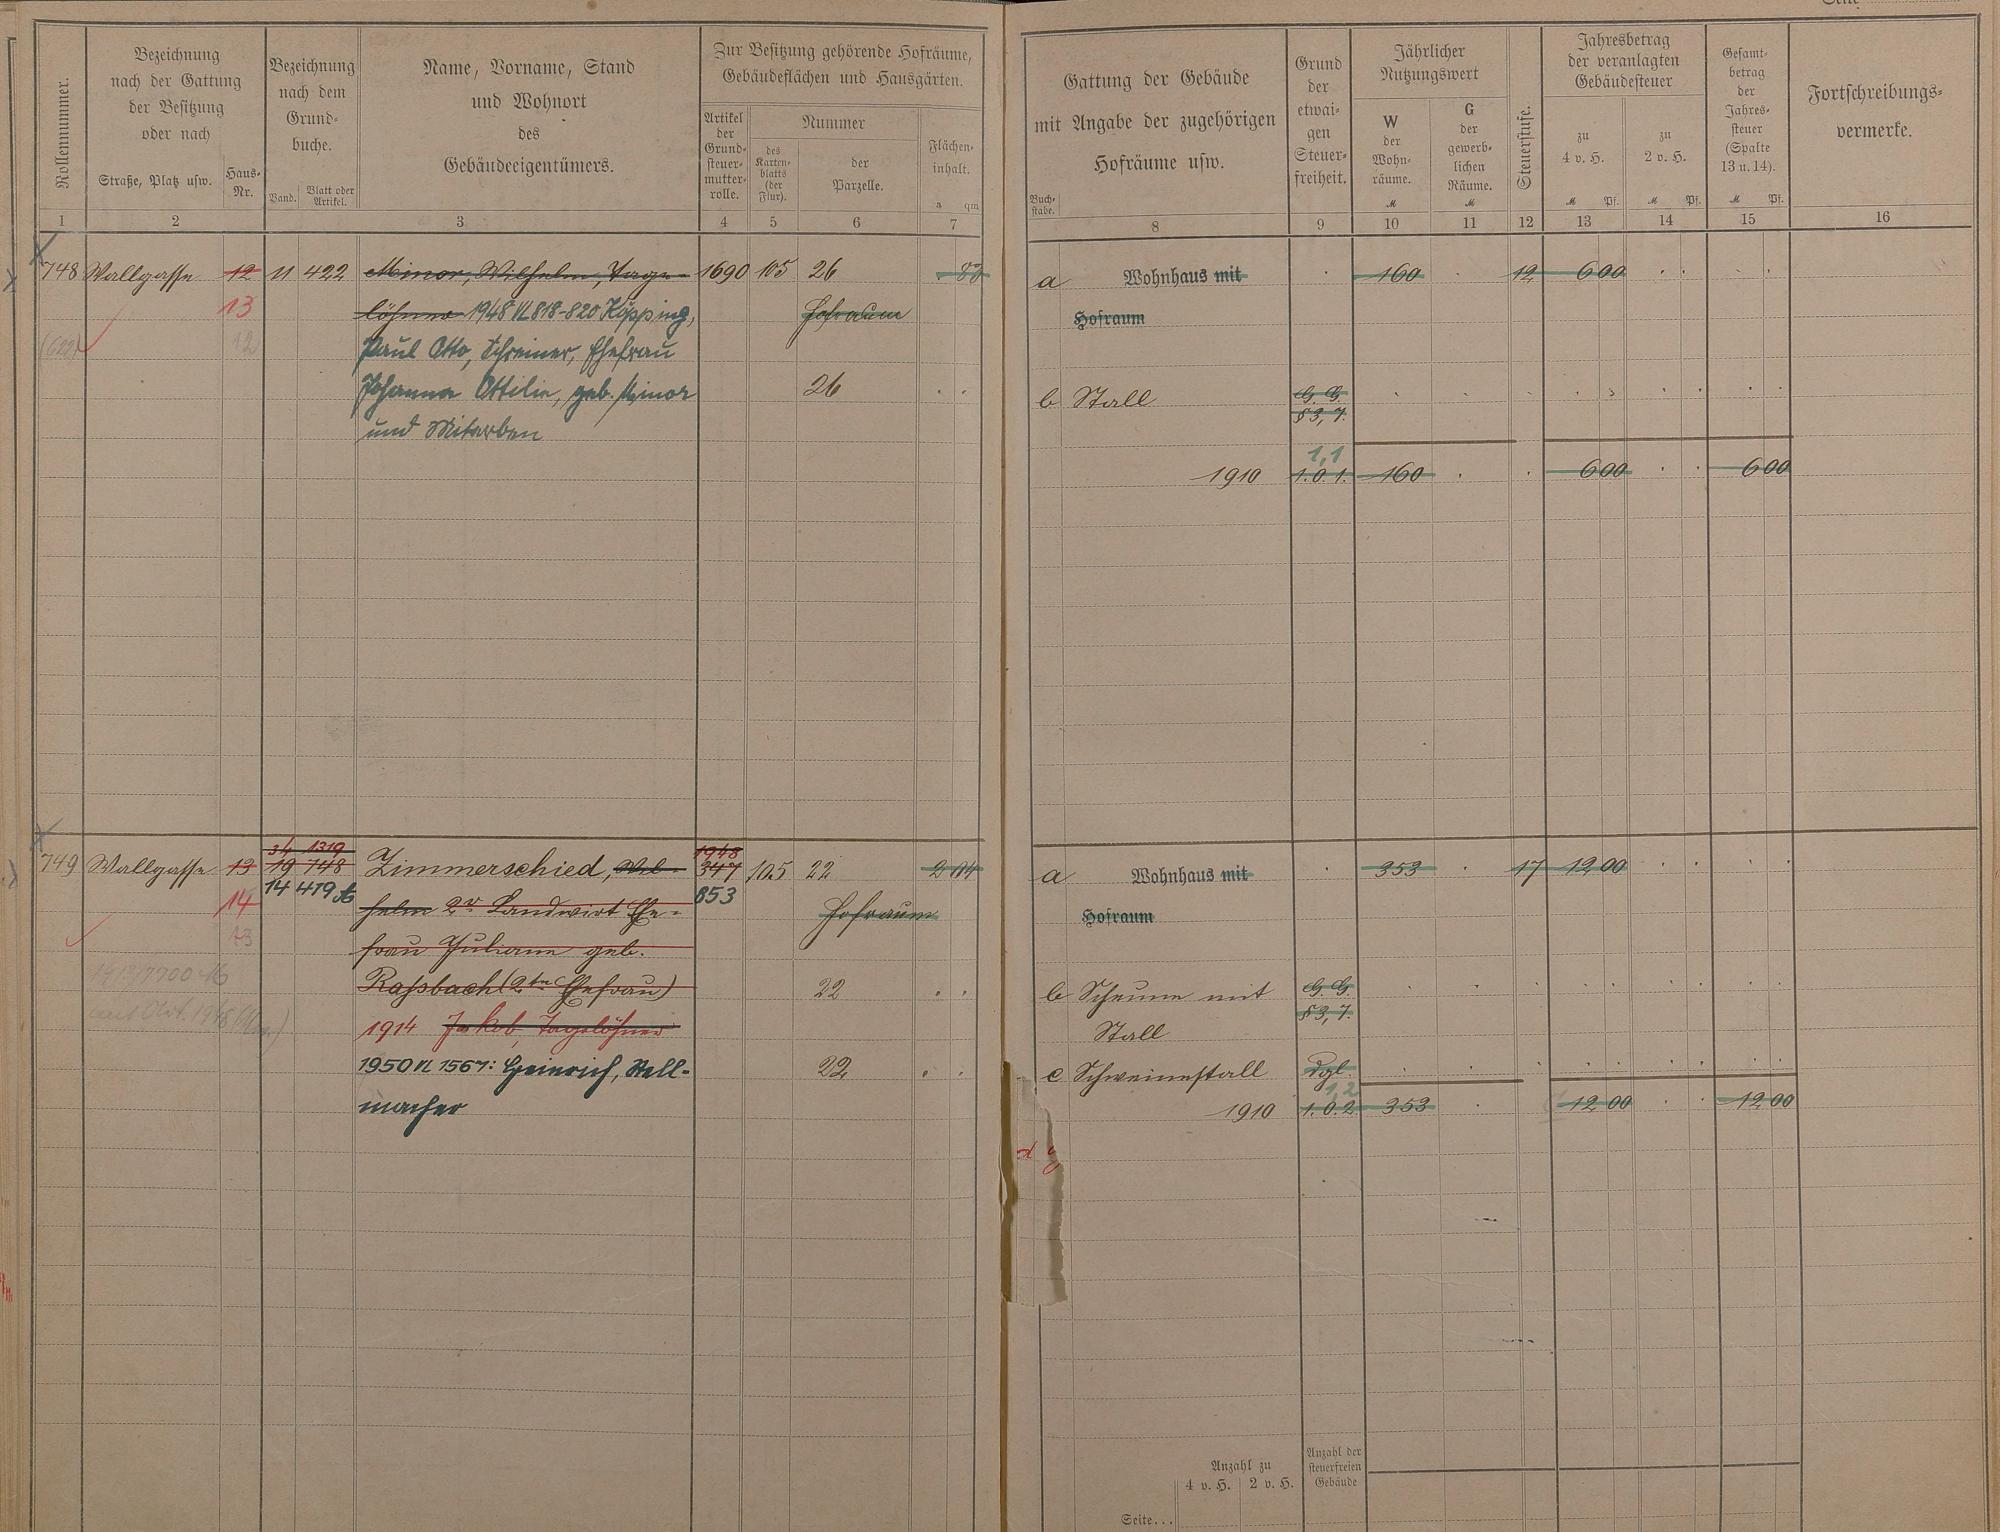 Seite
Rollennummer.
Bezeichnung
nach der Gattung
der Besitzung
oder nach
Straße, Platz usw.
Haus-
Nr.
Bezeichnung
nach dem
Grund-
buche.
Band.
Blatt oder
Artikel.
Name, Vorname, Stand
und Wohnort
des
Gebäudeeigentümers.
Zur Besitzung gehörende Hofräume,
Gebäudeflächen und Hausgärten.
Artikel
der
Grund-
steuer-
mutter-
rolle.
Nummer
des
Karten-
blatts
(der
Flur).
der
Parzelle.
Flächen-
inhalt.
a qm
1 2 3 4 5 6 7
748 Wallgasse 12 11 422 Minor, Wilhelm, Tage- 1690 105 26
13 löhner 1948 VL 818-820 Köpping, Hofraum
12 Paul Otto, Schreiner, Ehefrau
Johanna Ottilie, geb. Minor 26
und Miterben
34 1319 1948
749 Wallgasse 13 19 748 Zimmerschied, Wil- 347 105 22 2 04
14 419
14 helm 2r Landwirt Ehe- 853 Hofraum
13 frau Juliane geb.
Raßbach (2te Ehefrau) 22
1914 Jakob, Tagelöhner
1950 VL 1567: Heinrich, Stell- 22
macher
Gattung der Gebäude
mit Angabe der zugehörigen
Hofräume usw.
Buch-
stabe.
Grund
der
etwai-
gen
Steuer-
freiheit.
Jährlicher
Nutzungswert
W
der
Wohn-
räume.
M
G
der
gewerb-
lichen
Räume.
M
Steuerstufe.
Jahresbetrag
der veranlagten
Gebäudesteuer
zu
4 v. H.
M Pf.
zu
2 v. H.
M Pf.
Gesamt-
betrag
der
Jahres-
steuer
(Spalte
13 u. 14).
M Pf.
Fortschreibungs-
vermerke.
8 9 10 11 12 13 14 15 16
a Wohnhaus mit 160 12 6 00
Hofraum
b Stall G. G.
§ 3, 7.
1,1
1910 1. 0. 1. 160 6 00 6 00
a Wohnhaus mit 353 17 12 00
Hofraum
b Scheune mit G. G.
Stall § 3, 7.
c Schweinestall Dgl.
1,2
1910 1. 0. 2 353 12 00 12 00
Anzahl zu
4 v. H. 2 v. H.
Anzahl der
steuerfreien
Gebäude
Seite...